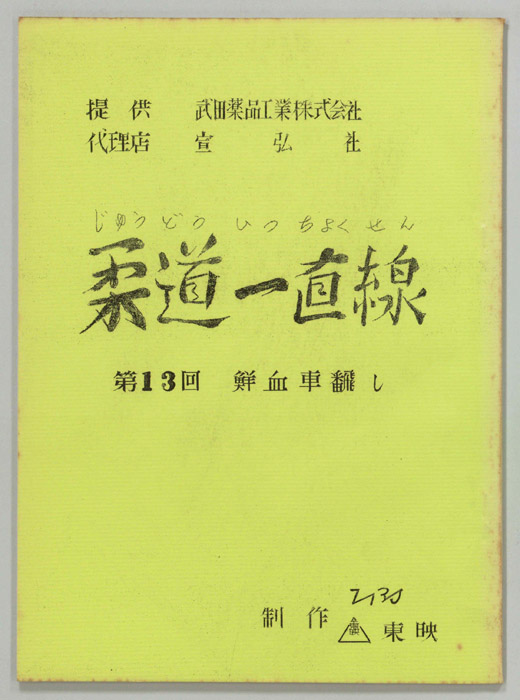 提供 武田薬品工業株式会社
代理店 宣弘社
じゅうどう いっちょくせん
柔道一直線
第13回 鮮血車飜し
制作 東映